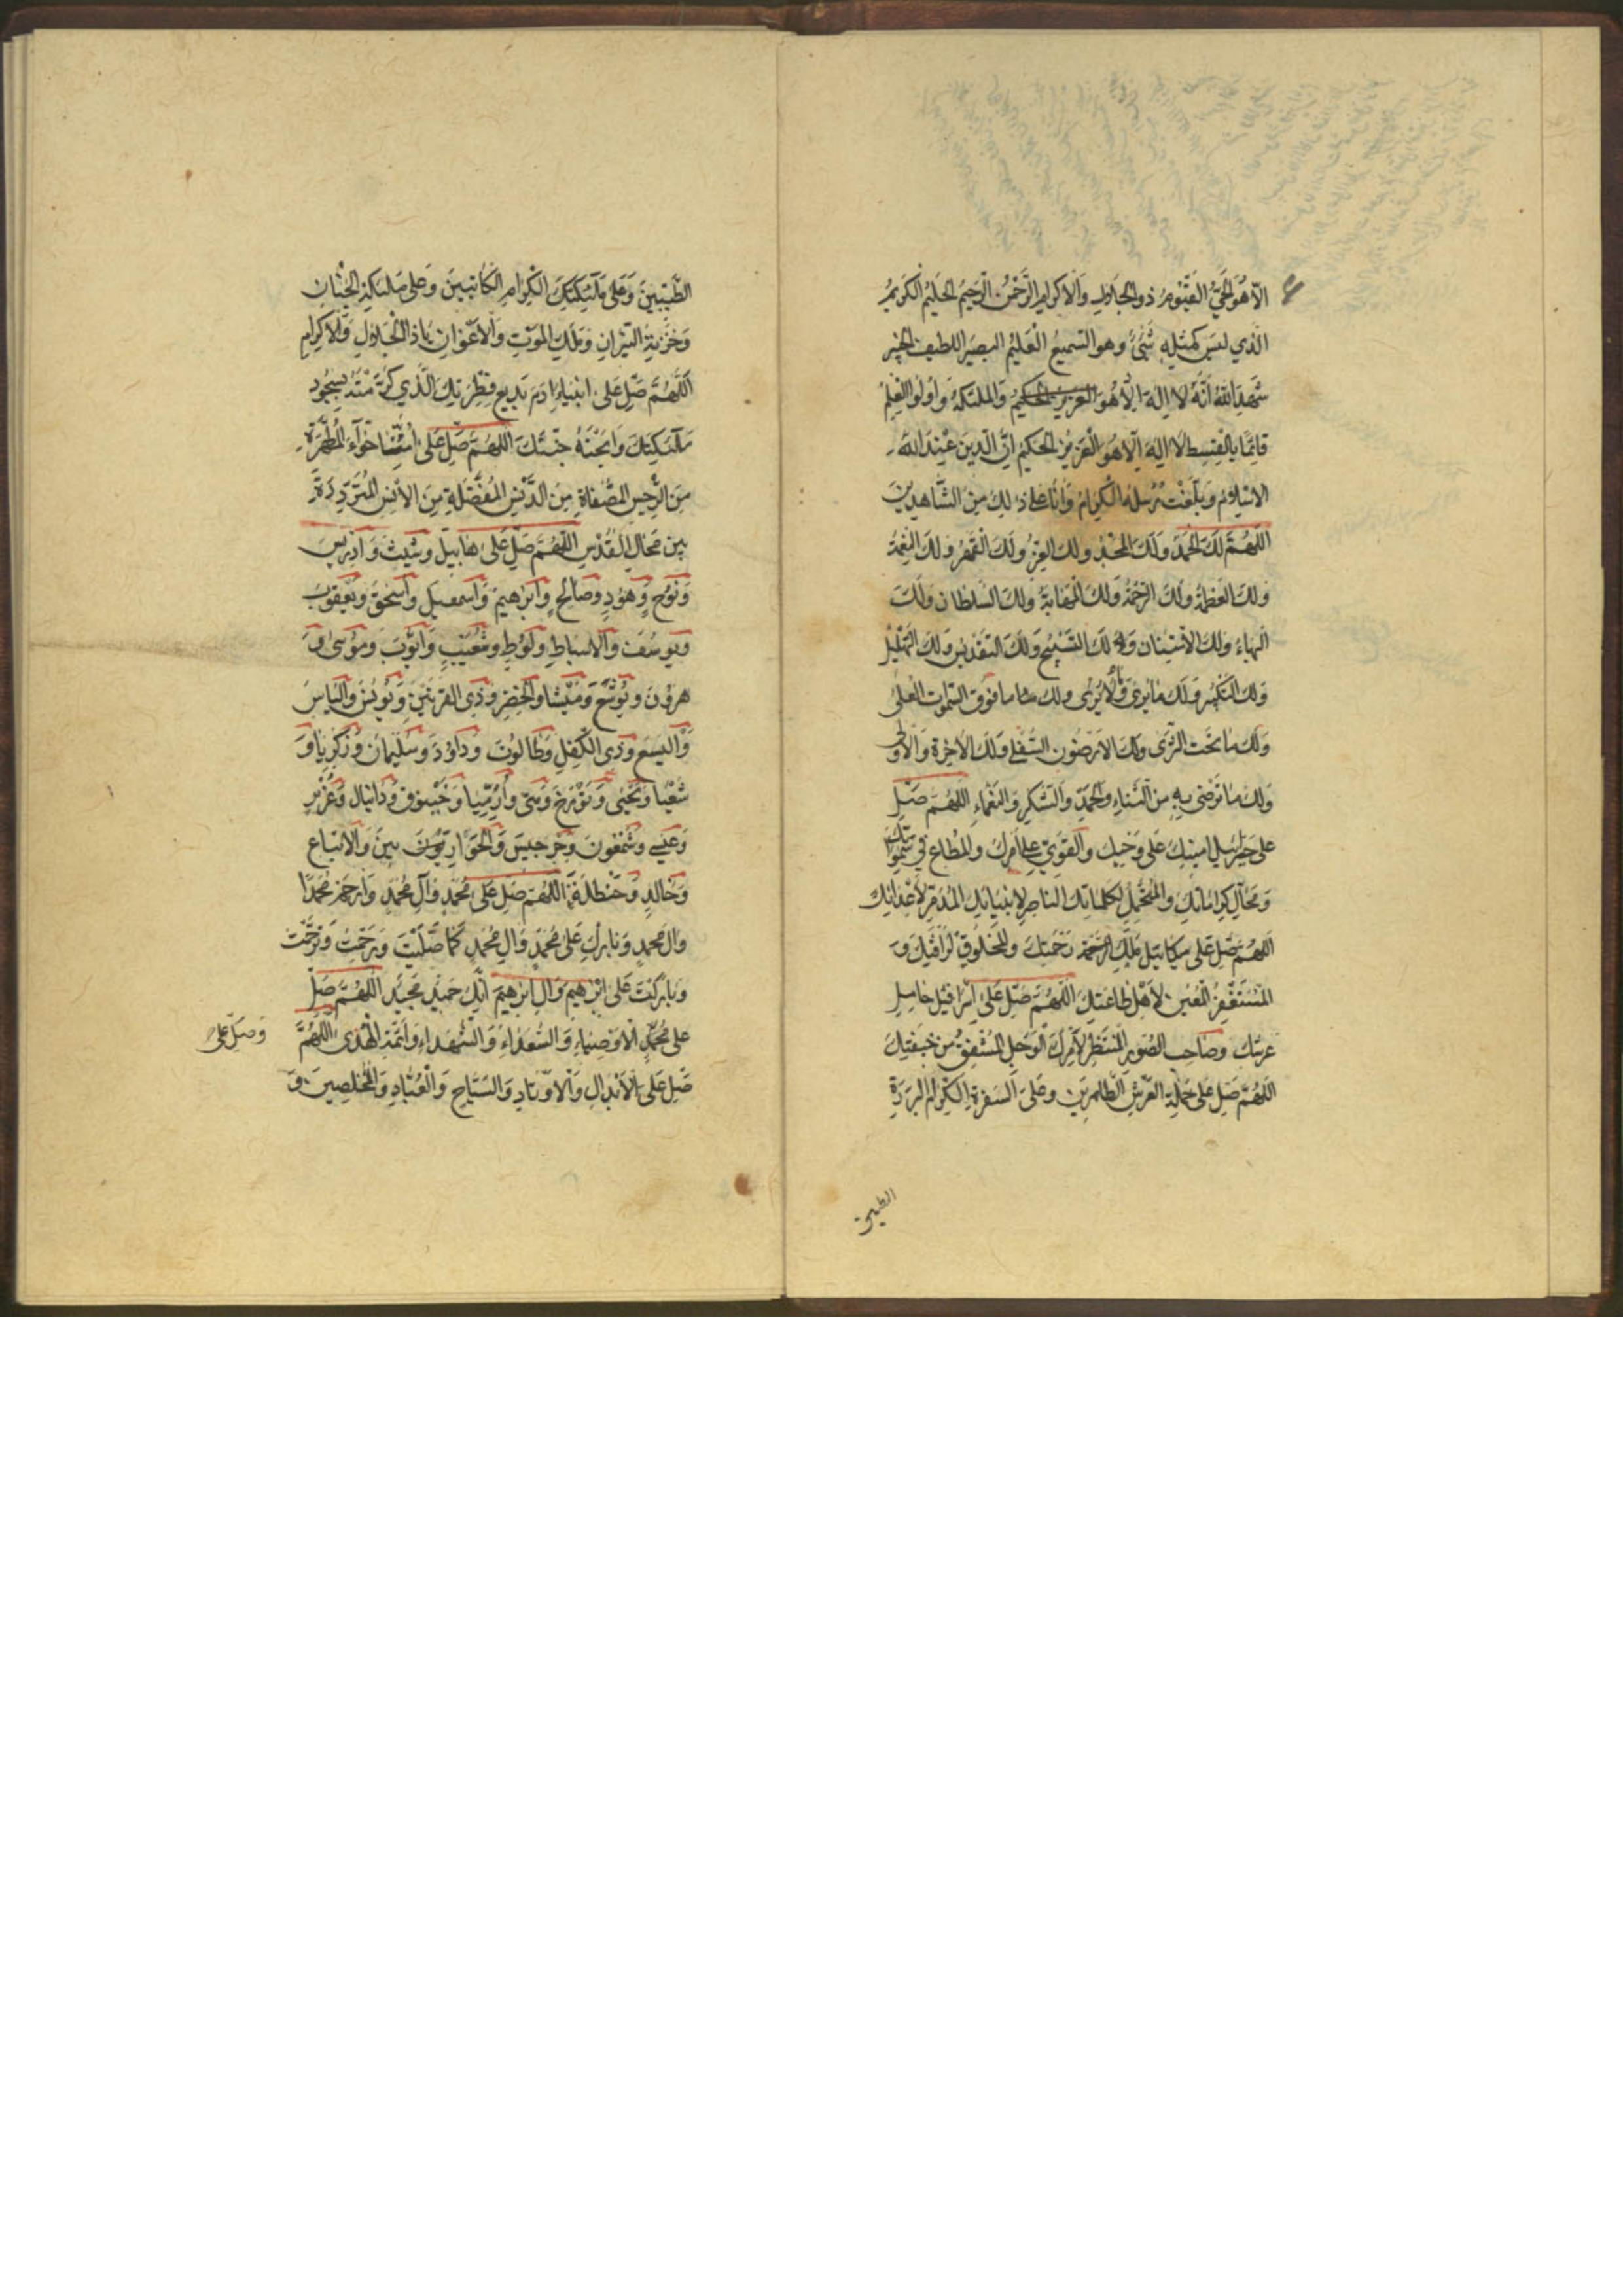 الا هو الحي القيوم ذو الجلال والاكرام الرحمن الرحيم الحليم الكريم
الذي ليس كمثله شيء وهو السميع العليم البصير اللطيف الخبير
شهد الله انه لا اله الا هو العزيز الحكيم والملئكة واولوا العلم
قائما بالقسط لا اله الا هو العزيز الحكيم ان الدين عند الله
الاسلام وبلغت رسله الكرام وانا على ذلك من الشاهدين
اللهم لك الحمد ولك المجد ولك العز ولك القهر ولك النعمة
ولك العظمة ولك الرحمة ولك المهابة ولك السلطان ولك
البهاء ولك الامتنان ولك التسبيح ولك التقديس ولك التهليل
ولك التكبير ولك ما يرى وما لا يرى ولك ما فوق السموات العلى
ولك ما تحت الثرى ولك الارضون السفلى ولك الاخرة والاولى
ولك ما ترضى به من الثناء والحمد والشكر والنعماء اللهم صل
على جبرئيل امينك على وحيك والقوي على امرك والمطاع في سمواتك
ومحال كراماتك والمتحمل لكلماتك الناصر لانبيائك المدمر لاعدائك
اللهم صل على ميكائيل ملك رحمتك والمخلوق لرافتك و
المستغفر المعين لاهل طاعتك اللهم صل على اسرافيل حامل
عرشك وصاحب الصور المنتظر لامرك الوجل المشفق من خيفتك
اللهم صل على حملة العرش الطاهرين وعلى السفرة الكرام البررة
الطيبين
الطيبين وعلى ملئكتك الكرام الكاتبين وعلى ملئكة الجنان
وخزنة النيران وملك الموت والاعوان يا ذا الجلال والاكرام
اللهم صل على ابينا ادم بديع فطرتك الذي كرمته بسجود
ملئكتك وابحته جنتك اللهم صل على امنا حواء المطهرة
من الرجس المصفاة من الدنس المفضلة من الانس المترددة
بين محال القدس اللهم صل على هابيل وشيث وادريس
ونوح وهود وصالح وابرهيم واسمعيل واسحق ويعقوب
ويوسف والاسباط ولوط وشعيب وايوب وموسى و
هرون ويوشع وميشا والخضر وذي القرنين ويونس والياس
واليسع وذي الكفل وطالوت وداود وسليمان وزكريا و
شعيا ويحيى وتورخ ومتى وارميا وحيقوق ودانيال وعزير
وعيسى وشمعون وجرجيس والحواريين والاتباع
وخالد وحنظلة اللهم صل على محمد وال محمد وارحم محمدا
وال محمد وبارك على محمد وال محمد كما صليت ورحمت وترحمت
وباركت على ابرهيم وال ابرهيم انك حميد مجيد اللهم صل
على محمد الاوصياء والسعداء والشهداء وائمة الهدى اللهم
وصل على
صل على الابدال والاوتاد والسياح والعباد والمخلصين و